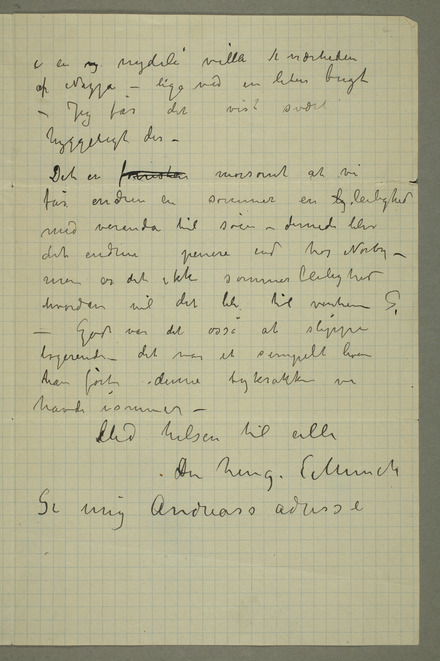 i en ny nydelig villa i nærheden
af Nizza – lige ved en liten bugt
– Jeg får det vist svært
hyggeligt der –
Det er morsomt at vi
får endnu en sommer en lejlighed
med veranda til søen –
det endnu penere end hos Norby –
men er det ikke sommerleilighed
hvordan vil det bli til vinteren
– Godt var det også at slippe
logerende – det var et simpelt
han førte denne vi
havde isommer –
Med hilsen til alle
Din heng. EMunch
Gi mig Andreas's adresse